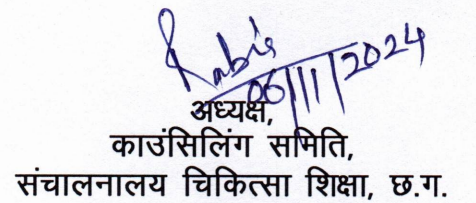 06/11/2024
अध्यक्ष,
काउंसिलिंग समिति,
संचालनालय चिकित्सा शिक्षा, छ.ग.